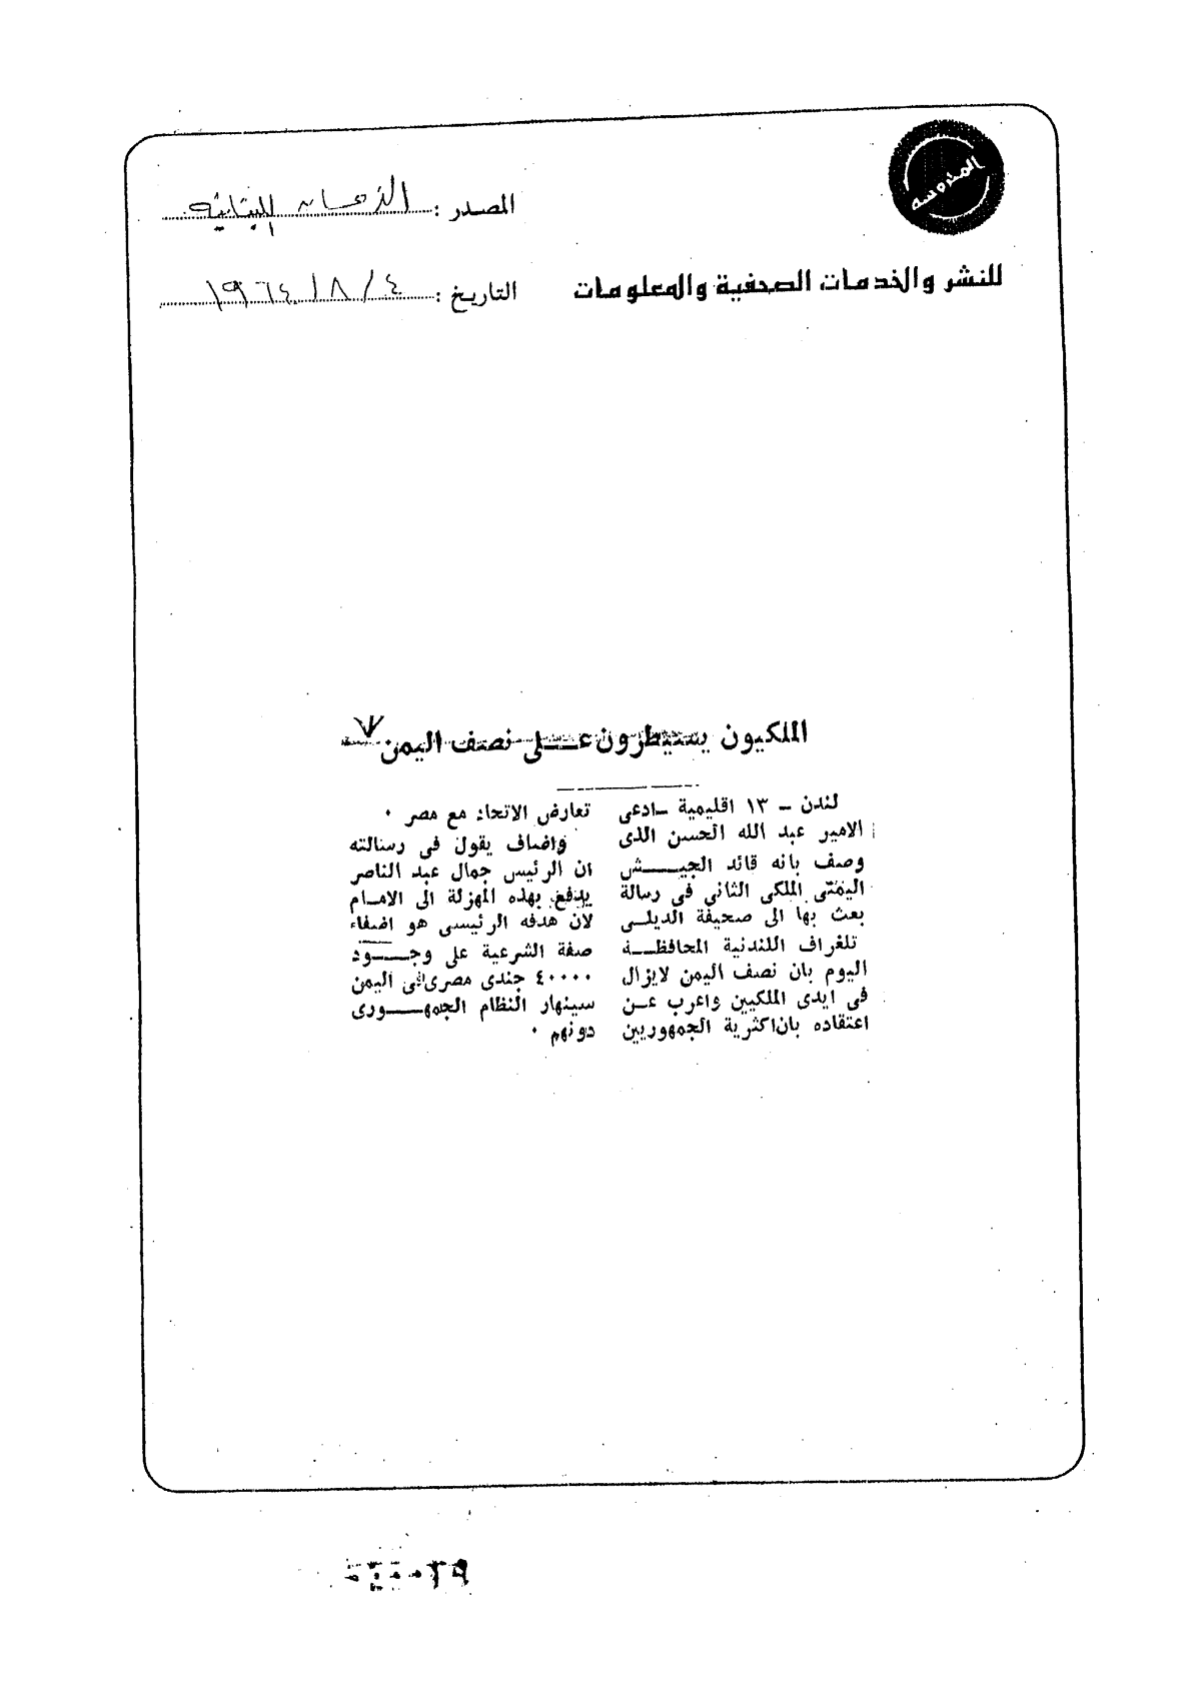 المحروسة
للنشر والخدمات الصحفية والمعلومات
المصدر : اللبنانية
التاريخ : ٤ / ٨ / ١٩٦٤
الملكيون يسيطرون عـــلى نصف اليمن
لندن ـ ١٣ اقليمية ـ ادعى
الامير عبد الله الحسن الذى
وصف بانه قائد الجيـــــش
اليمنى الملكى الثانى فى رسالة
بعث بها الى صحيفة الديلـــى
تلغراف اللندنية المحافظـــة
اليوم بان نصف اليمن لايزال
فى ايدى الملكيين واعرب عـــن
اعتقاده بان اكثرية الجمهوريين
تعارض الاتحاد مع مصر ٠
واضاف يقول فى رسالته
ان الرئيس جمال عبد الناصر
يدفع بهذه المهزلة الى الامـام
لان هدفه الرئيسى هو اضفاء
صفة الشرعية على وجـــــود
٤٠٠٠٠ جندى مصرى فى اليمن
سينهار النظام الجمهـــــورى
دونهم ٠